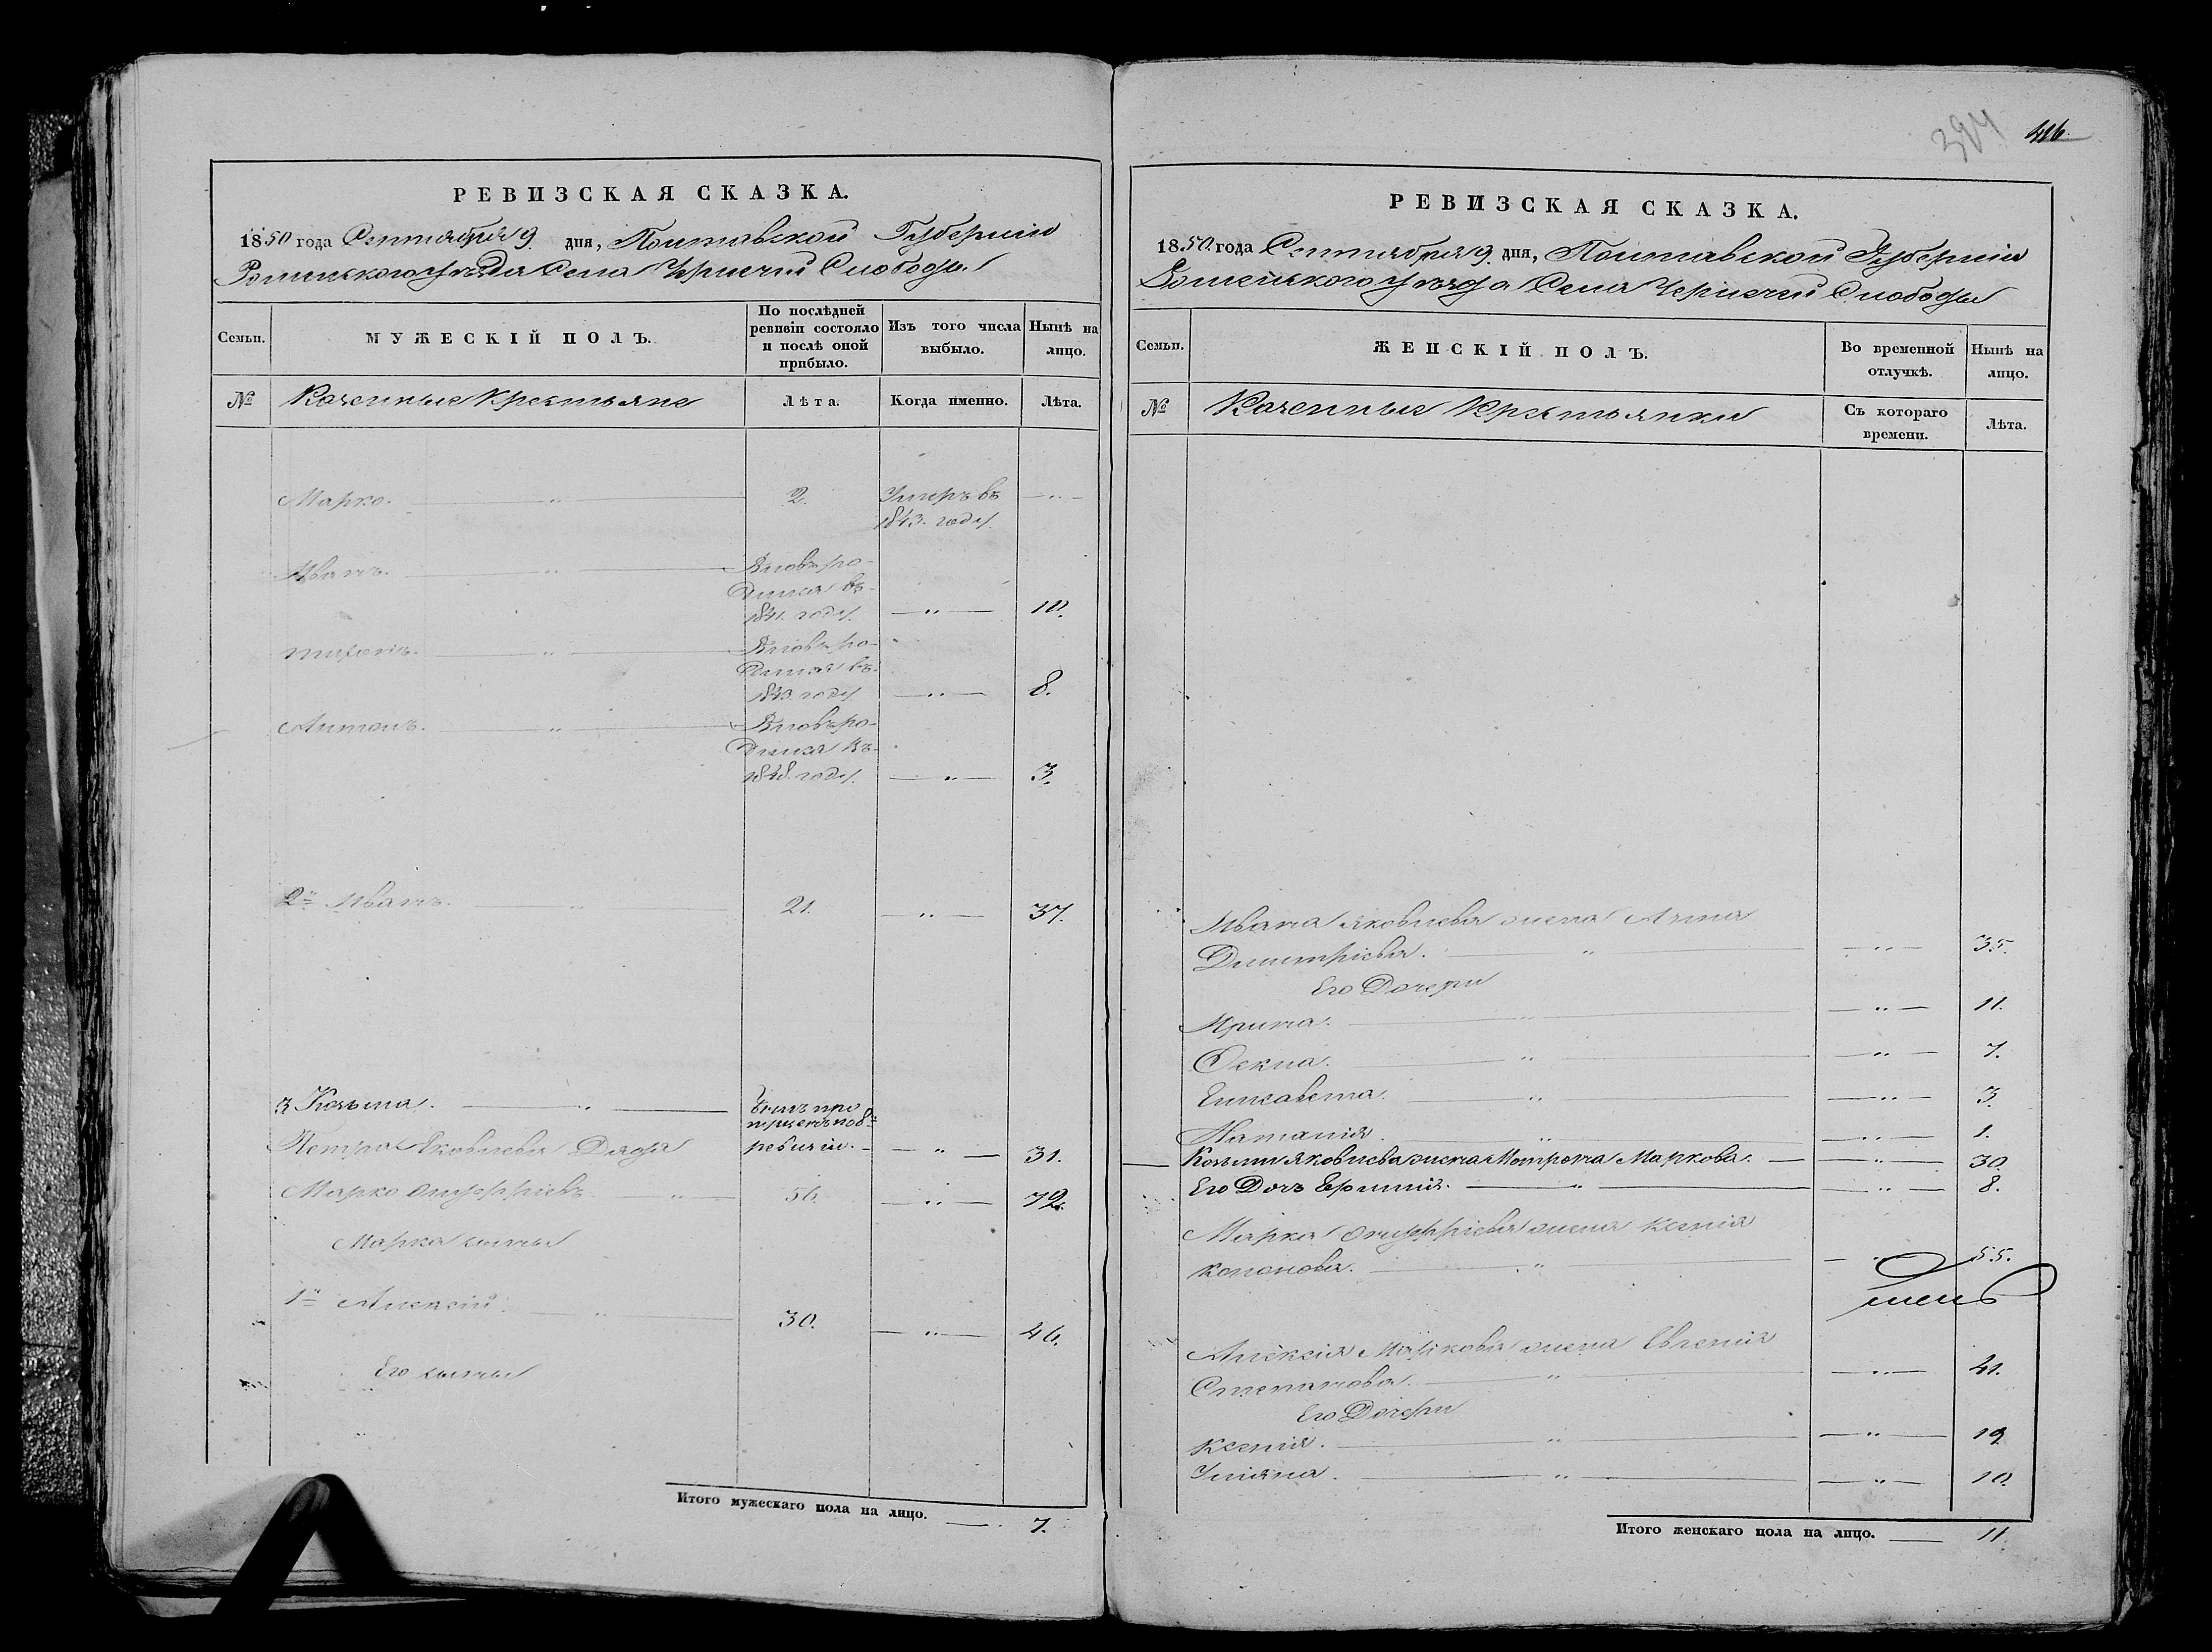 РЕВИЗСКАЯ СКАЗКА.
1850 года Сентября 9 дня, Полтавской Губерніи
Роменского уѣзда Села Чернечій Слободы
Семьи.
МУЖЕСКІЙ ПОЛЪ.
По послѣдней ревизіи состояло и послѣ оной прибыло.
Изъ того числа выбыло.
Нынѣ на лицо.
№
Казенные Крестьяне
Лѣта.
Когда именно.
Лѣта.
Марко. 2. Умеръ въ
1843. году
Иванъ. Вновь ро-
дился въ
1841. году. 10.
Вновь ро-
дился въ
1843. году 8.
Антонъ. Вновь ро-
дился въ
1848. году. 3.
2й Иванъ. 21. 37.
3 Козьма.
Петра Яковлева Дядя ревизіи. 31.
Марко Онуфріевъ 56. 72.
Марка сыны
1й Алексѣй. 30. 46.
Его сыны
Итого мужескаго пола на лицо. 7.
394
416
РЕВИЗСКАЯ СКАЗКА.
1850 года Сентября 9 дня, Полтавской Губерніи
Роменского уѣзда Села Чернечій Слободы
Семьи.
ЖЕНСКІЙ ПОЛЪ.
Во временной отлучкѣ.
Нынѣ на лицо.
№
Казенные Крестьянки
Съ котораго времени.
Лѣта.
Ивана Яковлева жена Анна
Димитріева. 35.
Его Дочери
Ирина. 11.
Фекла. 7.
Елисавета. 3.
Наталія. 1.
Козьми Яковлева жена Мотрона Маркова. 30.
Его Дочъ 8.
Марка Онуфріева жена Ксенія
Кононова. 55.
Алексія Маркова жена Евгенія
Степанова. 41.
Его Дочери
Ксенія. 19
Уліяна. 10.
Итого женскаго пола на лицо. 11.